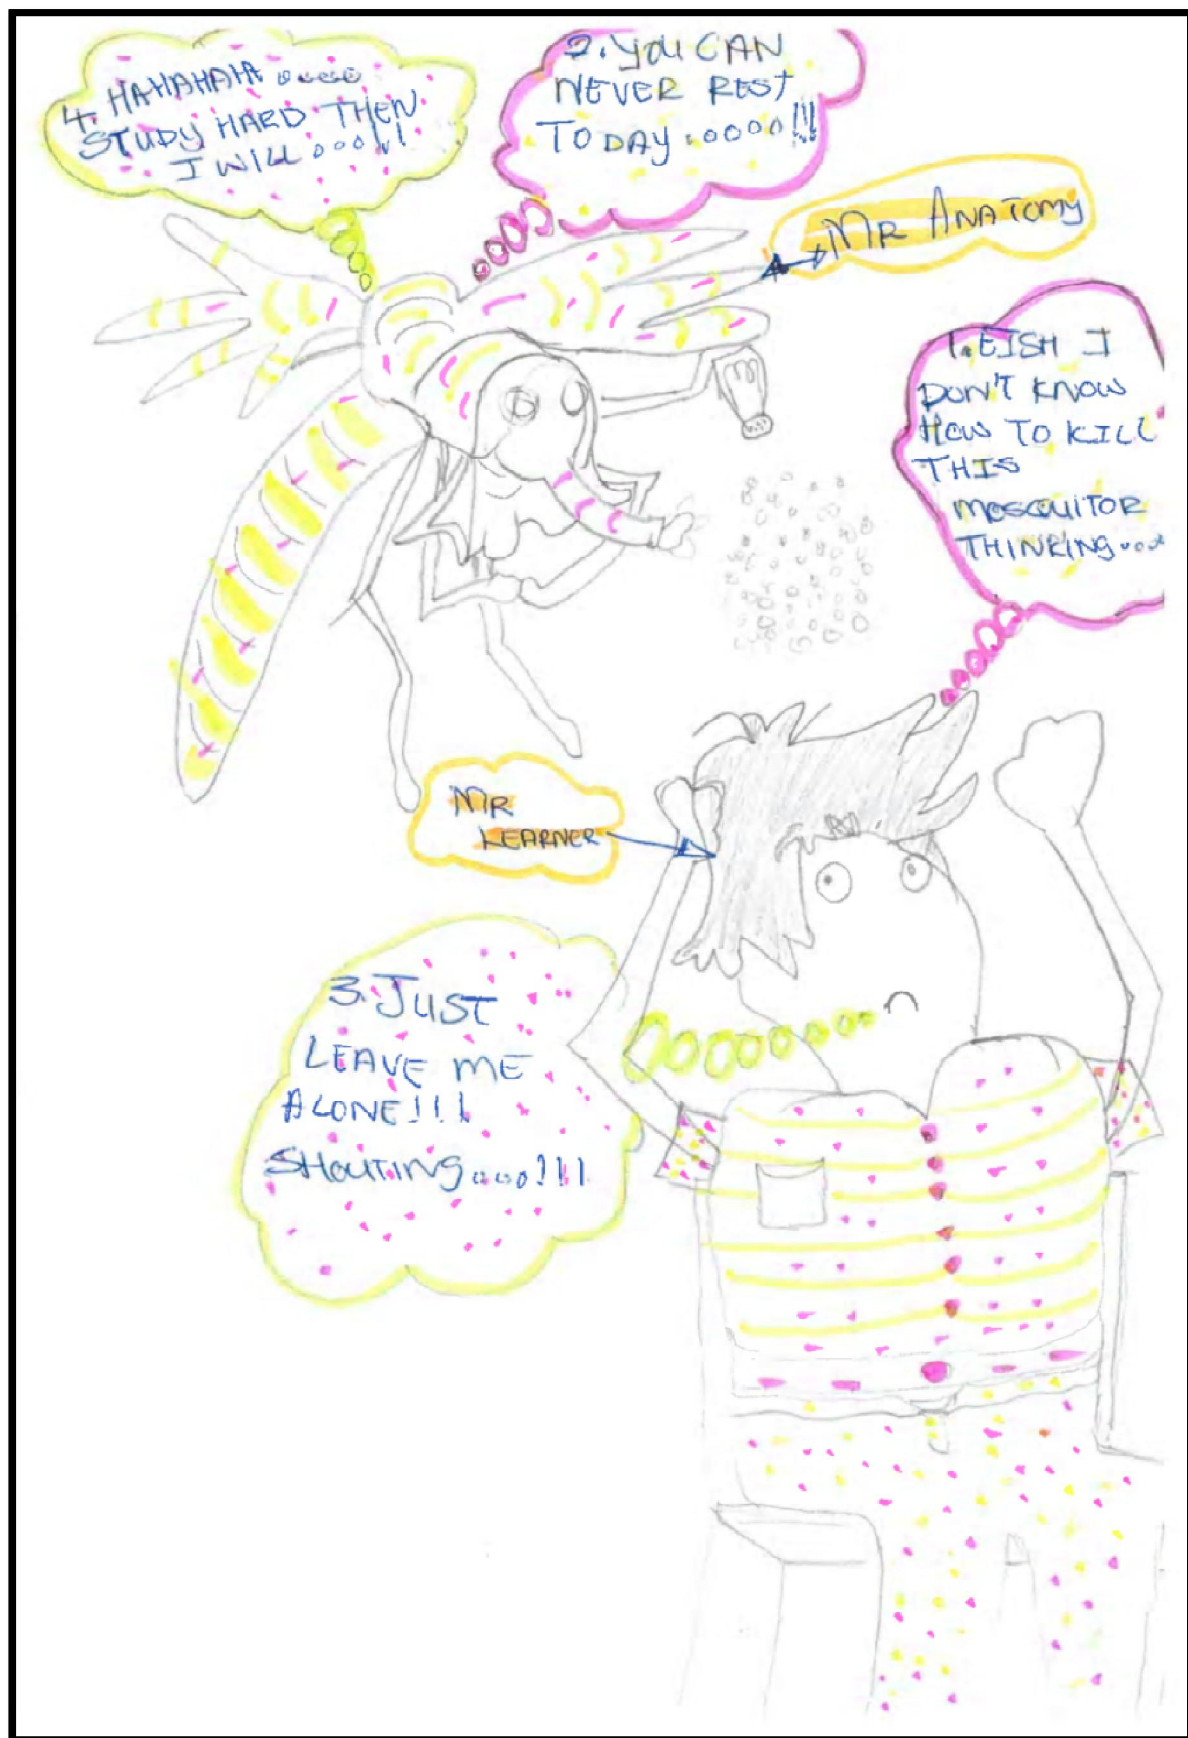 4. HAHAHAHA ooooo
STUDY HARD THEN
I WILL ooo!!
2. YOU CAN
NEVER REST
TODAY.oooo!!!
MR ANATOMY
1. EISH I
DON'T KNOW
HOW TO KILL
THIS
MOSQUITOR
THINKING....
MR
LEARNER
3. JUST
LEAVE ME
ALONE!!!
SHOUTING oooo!!!